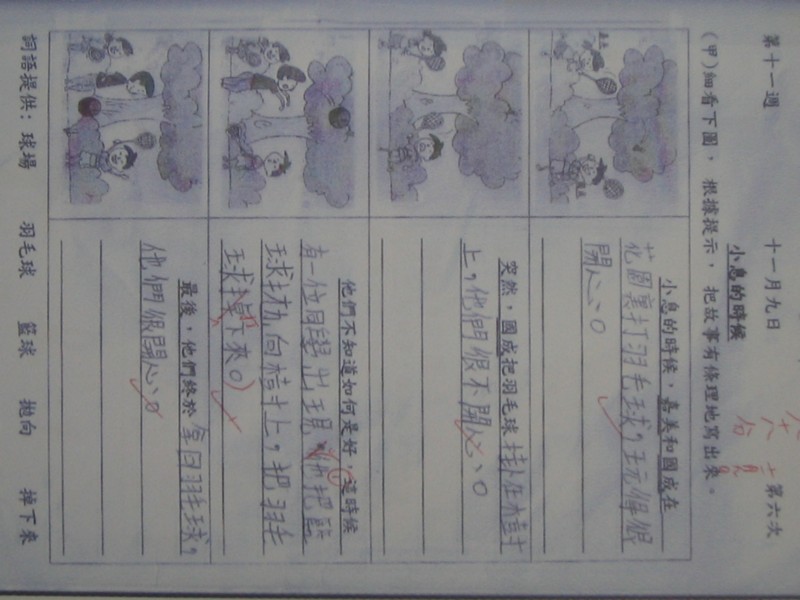 第十一週 十一月九日 第六次
小息的時候
(甲)細看下圖，根據提示，把故事有條理地寫出來。
小息的時候，嘉美和國成在
花園裏打羽毛球，玩得很
開心。
突然，國成把羽毛球掛在樹
上，他們很不開心。
他們不知道如何是好，這時候
有一位同學出現，他把籃
球拋向樹上，把羽毛
球掉下來。
最後，他們終於拿回羽毛球，
他們很開心。
詞語提供：球場 羽毛球 籃球 拋向 掉下來